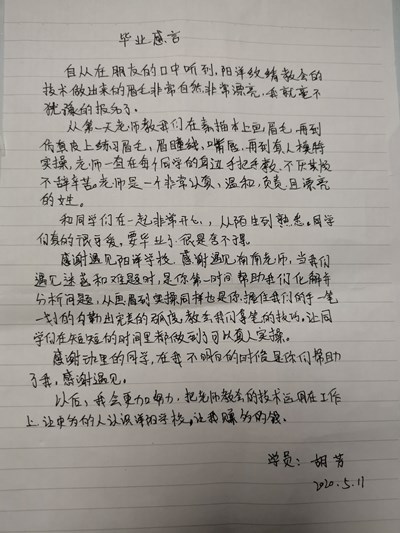 毕业感言
自从在朋友的口中听到,阳洋纹绣教会的
技术做出来的眉毛非常自然非常漂亮,我就毫不
犹豫的报名了。
从第一天老师教我们在素描本上画眉毛,再到
仿真皮上练习眉毛,眉眼线,嘴唇,再到有人模特
实操,老师一直在每个同学的身边手把手教,不厌其烦
不辞辛苦。老师是一个非常认真,温和,负责且漂亮
的女生。
和同学们在一起非常开心,从陌生到熟悉,同学
们真的很可爱,要毕业了很是舍不得。
感谢遇见阳洋学校,感谢遇见南南老师,当我们
遇见迷茫和难题时,是你第一时间帮助我们化解并
分析问题,从画眉到实操同样也是你握住我们的手一笔
一划的勾勒出完美的弧线,教会我们拿笔的技巧,让同
学们在短短的时间里都做到了可以真人实操。
感谢班里的同学,在我不明白的时候是你们帮助
了我,感谢遇见。
以后,我会更加努力,把老师教会的技术运用在工作
上,让更多的人认识洋阳学校,让我赚多的钱。
学员:胡芳
2020.5.11